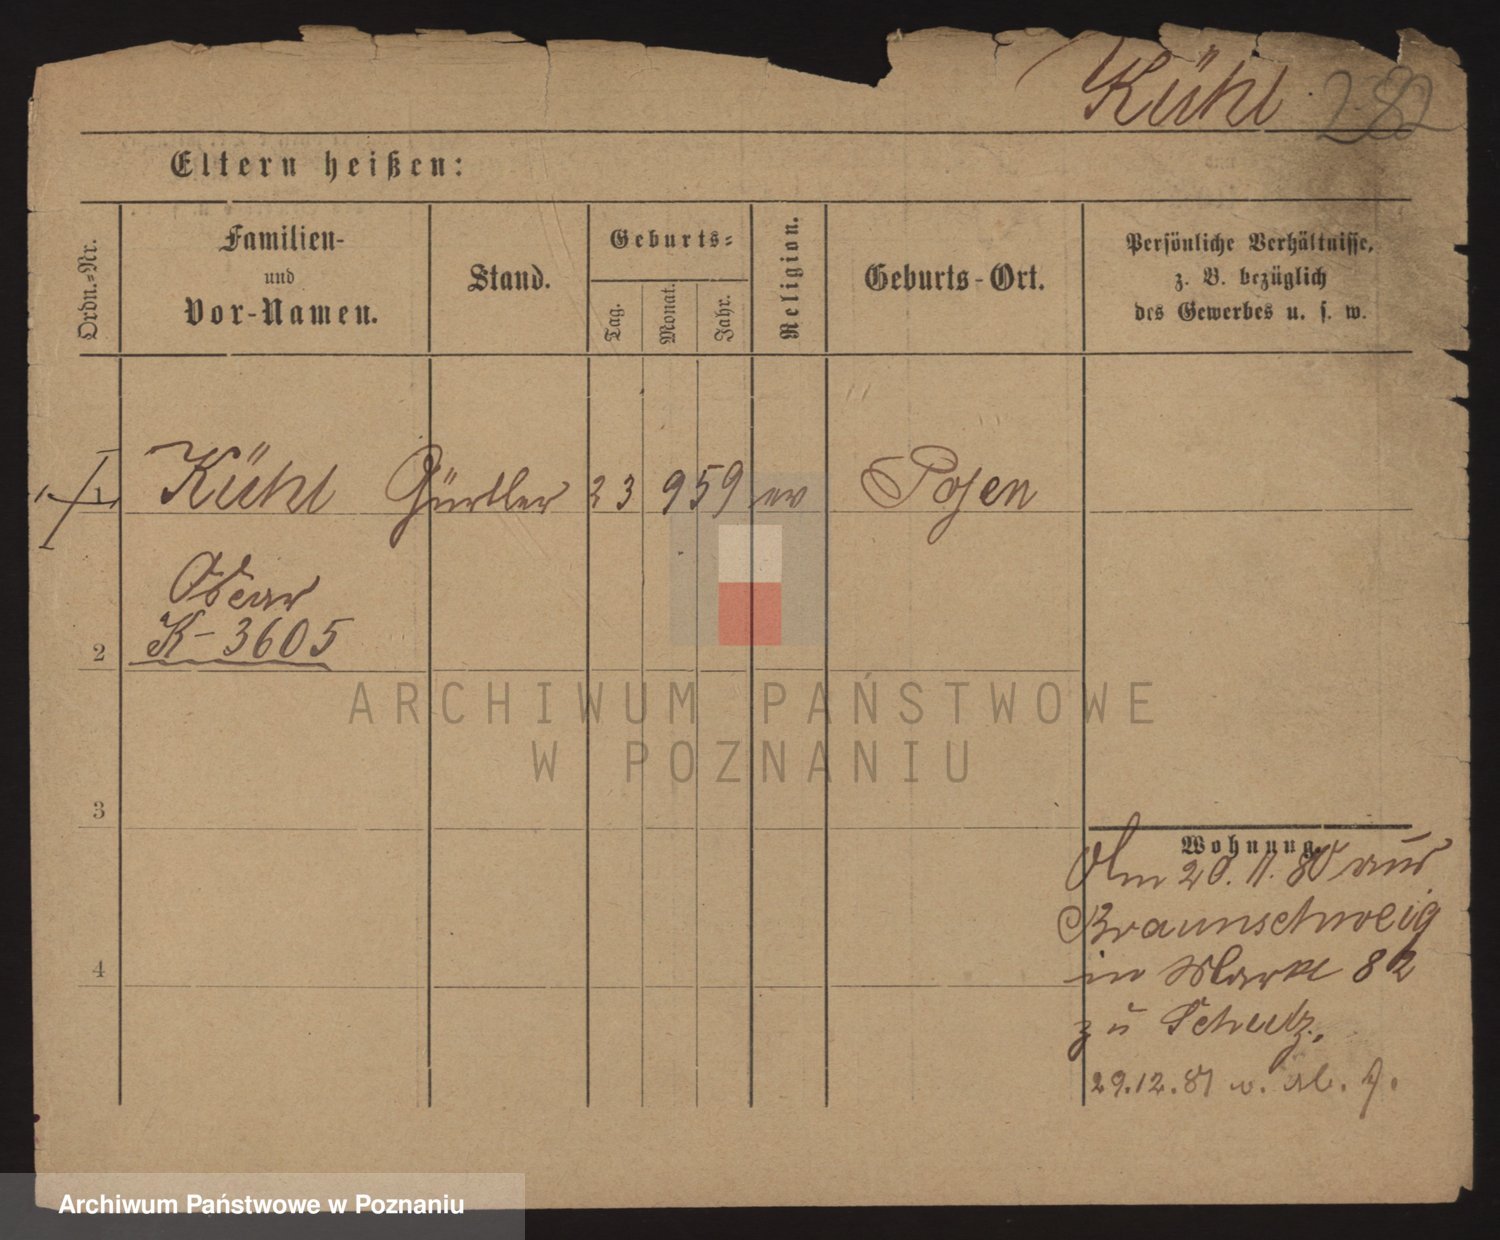 Kühl 282
Eltern heißen:
Ordn.-Nr.
Familien-
und
Vor-Namen.
Stand.
Geburts-
Tag.
Monat.
Jahr.
Religion.
Geburts-Ort.
Persönliche Verhältnisse,
z. B. bezüglich
des Gewerbes u. s. w.
1 Kühl Gürtler 23 9 59 ev Posen
Oscar
K-3605
2
3
4
Wohnung.
Am 20. 11. 80 aus
Braunschweig
in Markt 82
zu Schulz.
29.12.81 v. Ab.
ARCHIWUM PAŃSTWOWE
W POZNANIU
Archiwum Państwowe w Poznaniu